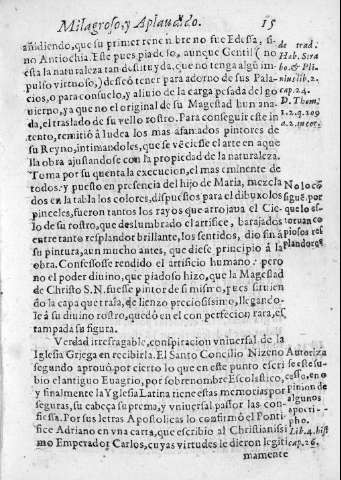 Milagroso, y Aplaudido. 15
añidiendo, que su primer renenbre no fue Edessa, si-
no Antiochia. Este pues piadoso, aunque Gentil (no
està la naturaleza tan destituyda, que no tenga algũ im-
pulso virtuoso,) deseó tener para adorno de sus Pala-
cios, o para consuelo, y alivio de la carga pesada del go
vierno, ya que no el original de su Magestad humana-
da, el traslado de su vello rostro. Para conseguir este in-
tento, remitió à Iudea los mas afamados pintores de
su Reyno, intimandoles, que se vẽciesse el arte en aque
lla obra ajustandose con la propiedad de la naturaleza.
Toma por su quenta la execucion, el mas eminente de
todos: y puesto en presencia del hijo de Maria, mezcla
dos en la tabla los colores, dispuestos para el dibuxo los
pinceles, fueron tantos los rayos que arrojava el Cie-
lo de su rostro, que deslumbrado el artifice, barajados
entre tanto resplandor brillante, los sentidos, dio fin à
su pintura, aun mucho antes, que diese principio à la
obra. Confessose rendido el artificio humano: pero
no el poder divino, que piadoso hizo, que la Magestad
de Christo S.N. fuesse pintor de si mismo, pues sirvien
do la capa que traîa, de lienzo preciosissimo, llegando-
le à su divino rostro, quedó en el con perfecion rara, es
tampada su figura.
Verdad irrefragable, conspiracion vniversal de la
Iglesia Griega en recibirla. El Santo Concilio Nizeno
segundo aprouò, por cierto lo que en este punto escri
bio el antiguo Euagrio, por sobrenombre Escolastico,
y finalmente la Yglesia Latina tiene estas memorias por
seguras, su cabeça suprema, y vniversal pastor las con-
fiessa. Por sus letras Apostolicas lo confirmò el Ponti-
fice Adriano en vna carta, que escribio al Christianissi
mo Emperador Carlos, cuyas virtudes le dieron legiti
mamente
de trad.
Hab. Sira
bo. & Pli
nius lib. 2.
cap. 24.
D. Thom.
1. 2. q. 109
a. 2. in cor.
No locõ
sigue. por
que lo es-
toruan co
piosos res
plandores
Autoriza
se este su-
cesso, en o
pinion de
algunos
apocri-
pho.
Lib. 4. hist
cap. 26.